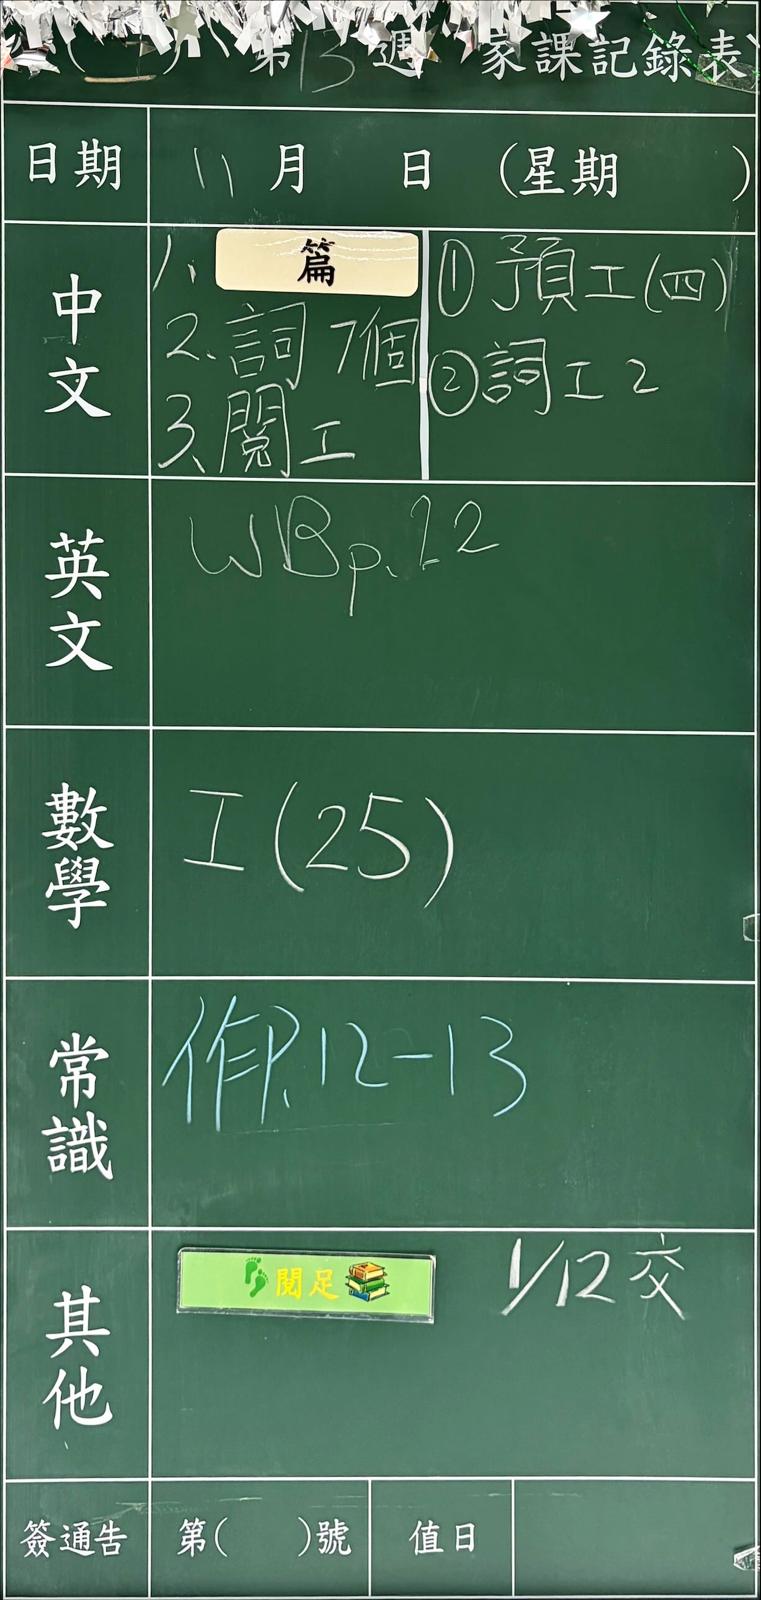 ( ) 第13週 家課記錄表
日期 11月 日 (星期 )
中文
1. 篇
2. 詞7個
3. 閱工
① 預工(四)
② 詞工2
英文
WB p.22
數學
工(25)
常識
作P.12-13
其他
閱足 1/12交
簽通告 第( )號 值日